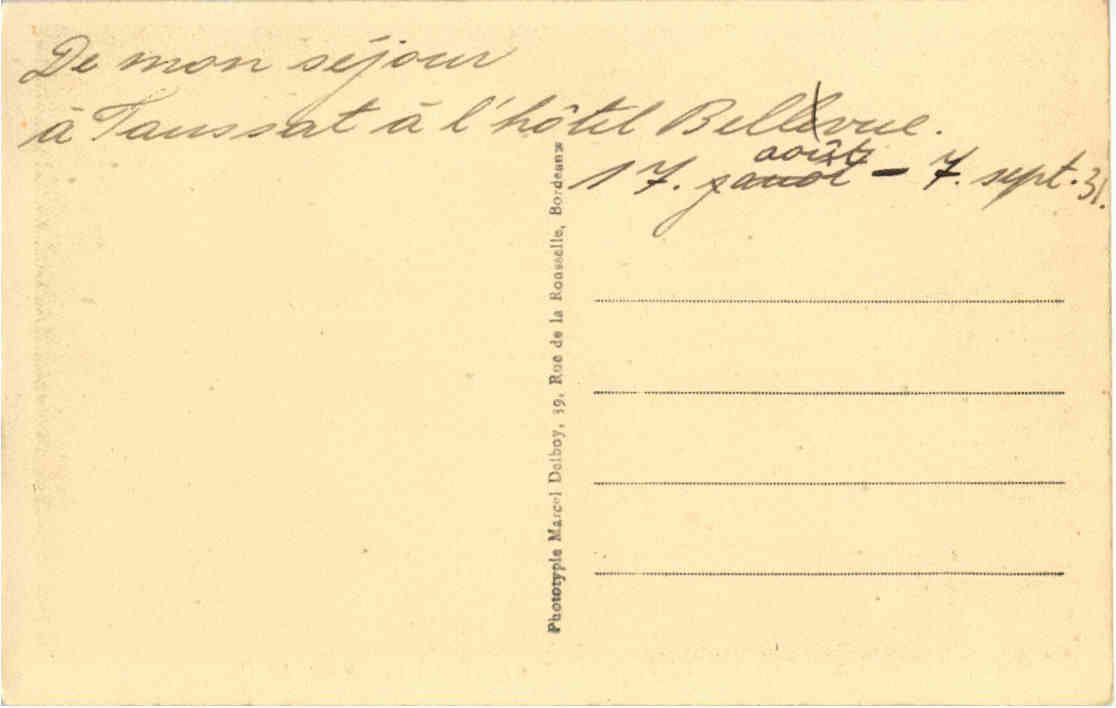 De mon séjour
à Taussat à l'hôtel Bellevue.
août
17. – 7. sept. 31.
Phototypie Marcel Delboy, 39, Rue de la Rousselle, Bordeaux